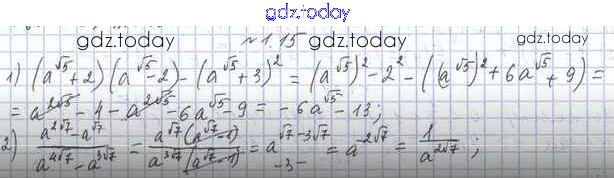 gdz.today
gdz.today № 1.15 gdz.today
1) (a^√5 + 2)(a^√5 - 2) - (a^√5 + 3)^2 = (a^√5)^2 - 2^2 - ((a^√5)^2 + 6a^√5 + 9) =
= a^2√5 - 4 - a^2√5 - 6a^√5 - 9 = -6a^√5 - 13;
2) (a^2√7 - a^√7)/(a^4√7 - a^3√7) = (a^√7(a^√7 - 1))/(a^3√7(a^√7 - 1)) = a^√7-3√7 = a^-2√7 = 1/a^2√7;
-3-